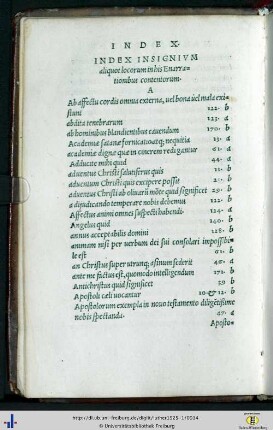 INDEX.
INDEX INSIGNIVM
aliquot locorum in his Enarra-
tionibus contentorum.
A
Ab affectu cordis omnia externa, uel bona uel mala exi-
stunt 122. b
abdita tenebrarum 123. a
ab hominibus blandientibus cauendum 170. b
Academiæ satanæ fornicatioatq; nequitia 13. a
academiæ dignæ quæ in cinerem redigantur 61. a
Adducite mihi quid 44. a
aduentus Christi salutiferus quis 11. b
aduentum Christi quis excipere possit 21. b
aduentus Christi ab oliuarū mōte quid significet 29. b
a dijudicando temperare nobis debemus 122. b
Affectus animi omnes suspecti habendi 124. a
Angelus quid 140. b
annus acceptabilis domini 128. b
animam nisi per uerbum dei sui consolari impossibi-
le est 61. b
an Christus super utrunq; asinum sederit 40. a
ante me factus est, quomodo intelligendum 171. b
Antichristus quid significet 29. b
Apostoli cæli uocantur 10. & 12. b
Apostolorum exempla in nouo testamento diligētissime
nobis spectanda 47. a
Aposto-
http://dl.ub.uni-freiburg.de/diglit/luther1525-1/0014
© Universitätsbibliothek Freiburg